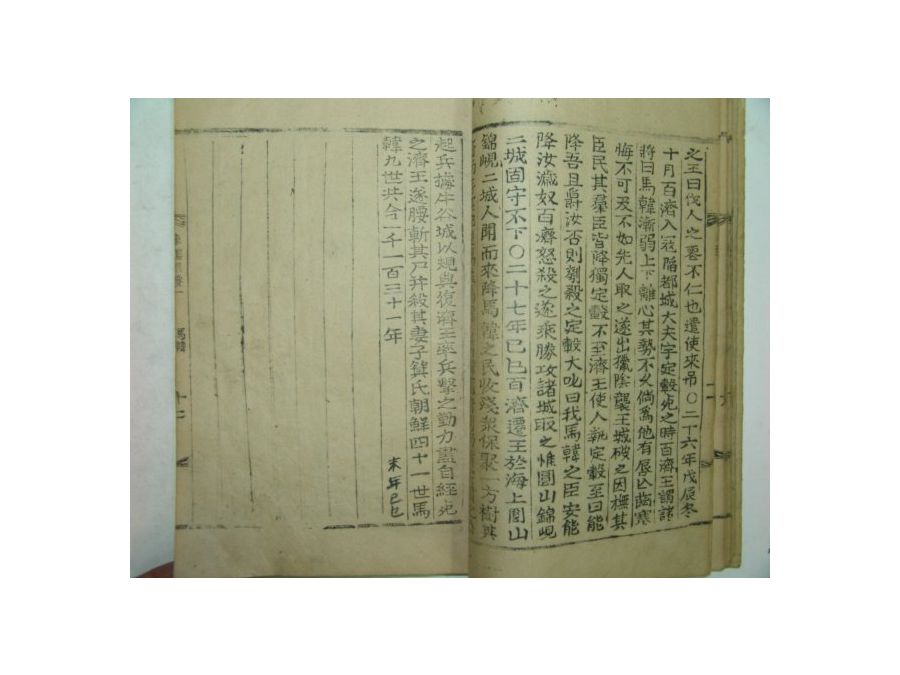 之王曰伐人之喪不仁也遣使來吊〇二十六年戊辰冬
十月百濟入寇陷都城大夫宇定毅死之時百濟王謂諸
將曰馬韓漸弱上下離心其勢不久倘爲他有唇亡齒寒
悔不可及不如先人取之遂出獵陰襲王城破之因撫其
臣民其羣臣皆降獨定毅不至濟王使人執定毅至曰能
降吾且爵汝否則剮殺之定毅大叱曰我馬韓之臣安能
降汝瀛奴百濟怒殺之遂乘勝攻諸城取之惟圓山錦峴
二城固守不下〇二十七年己巳百濟遷王於海上圓山
錦峴二城人聞而來降馬韓之民收殘衆保聚一方樹其
起兵據牛谷城以規興復濟王率兵擊之勤力盡自經死
之濟王遂腰斬其尸幷殺其妻子箕氏朝鮮四十一世馬
韓九世共今一千一百三十一年
末年己巳
馬韓